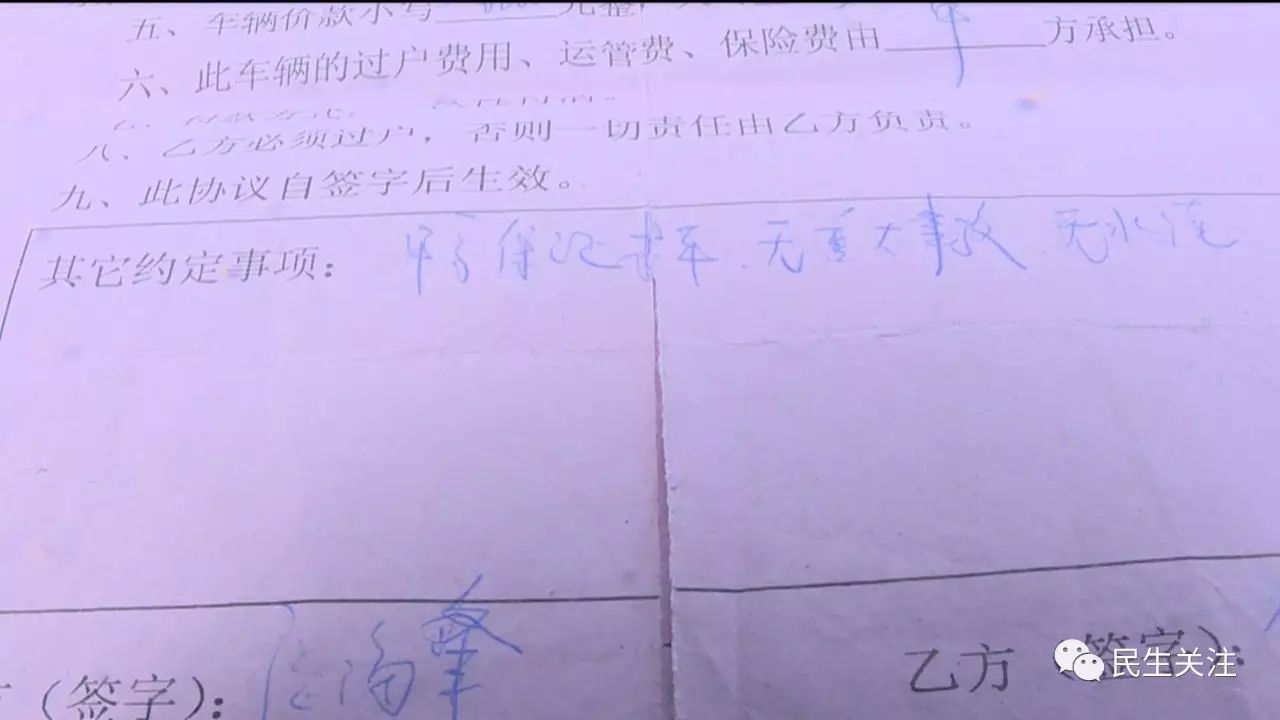 五、车辆价款小写
六、此车辆的过户费用、运管费、保险费由甲方承担。
七、付款方式:
八、乙方必须过户，否则一切责任由乙方负责。
九、此协议自签字后生效。
其它约定事项: 甲方保证此车.无重大事故 无水淹
(签字):
乙方(签字):
民生关注